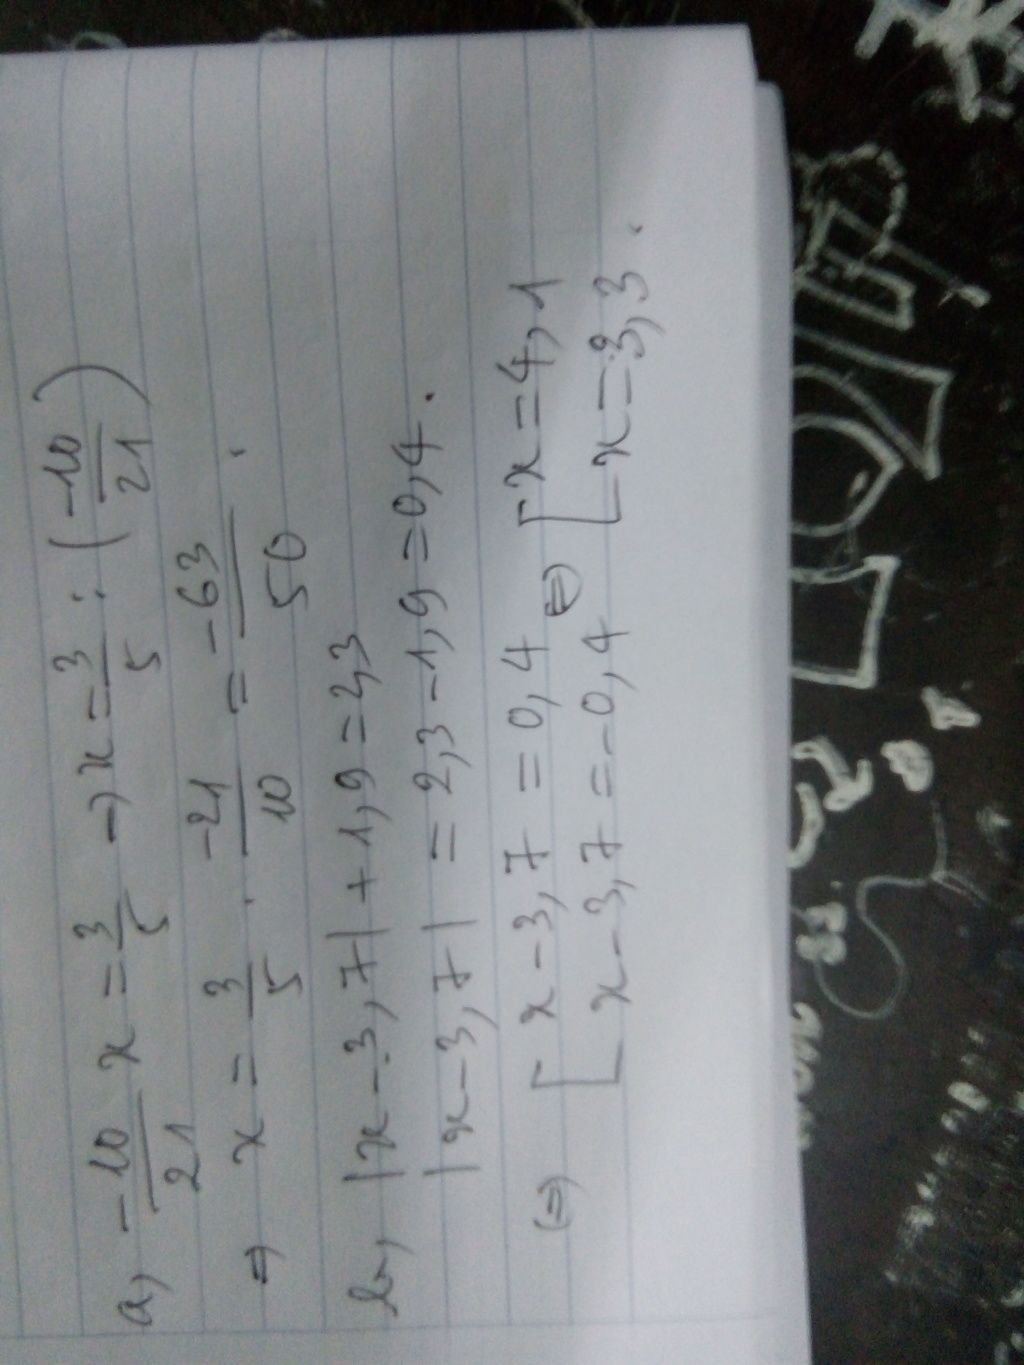 a, -10/21 x = 3/5 → x = 3/5 : (-10/21)
⇒ x = 3/5 . -21/10 = -63/50 .
b, |x-3,7| + 1,9 = 2,3
|x-3,7| = 2,3 - 1,9 = 0,4 .
⇔ [ x-3,7 = 0,4 ⇔ [ x = 4,1
x-3,7 = -0,4 x = 3,3 .